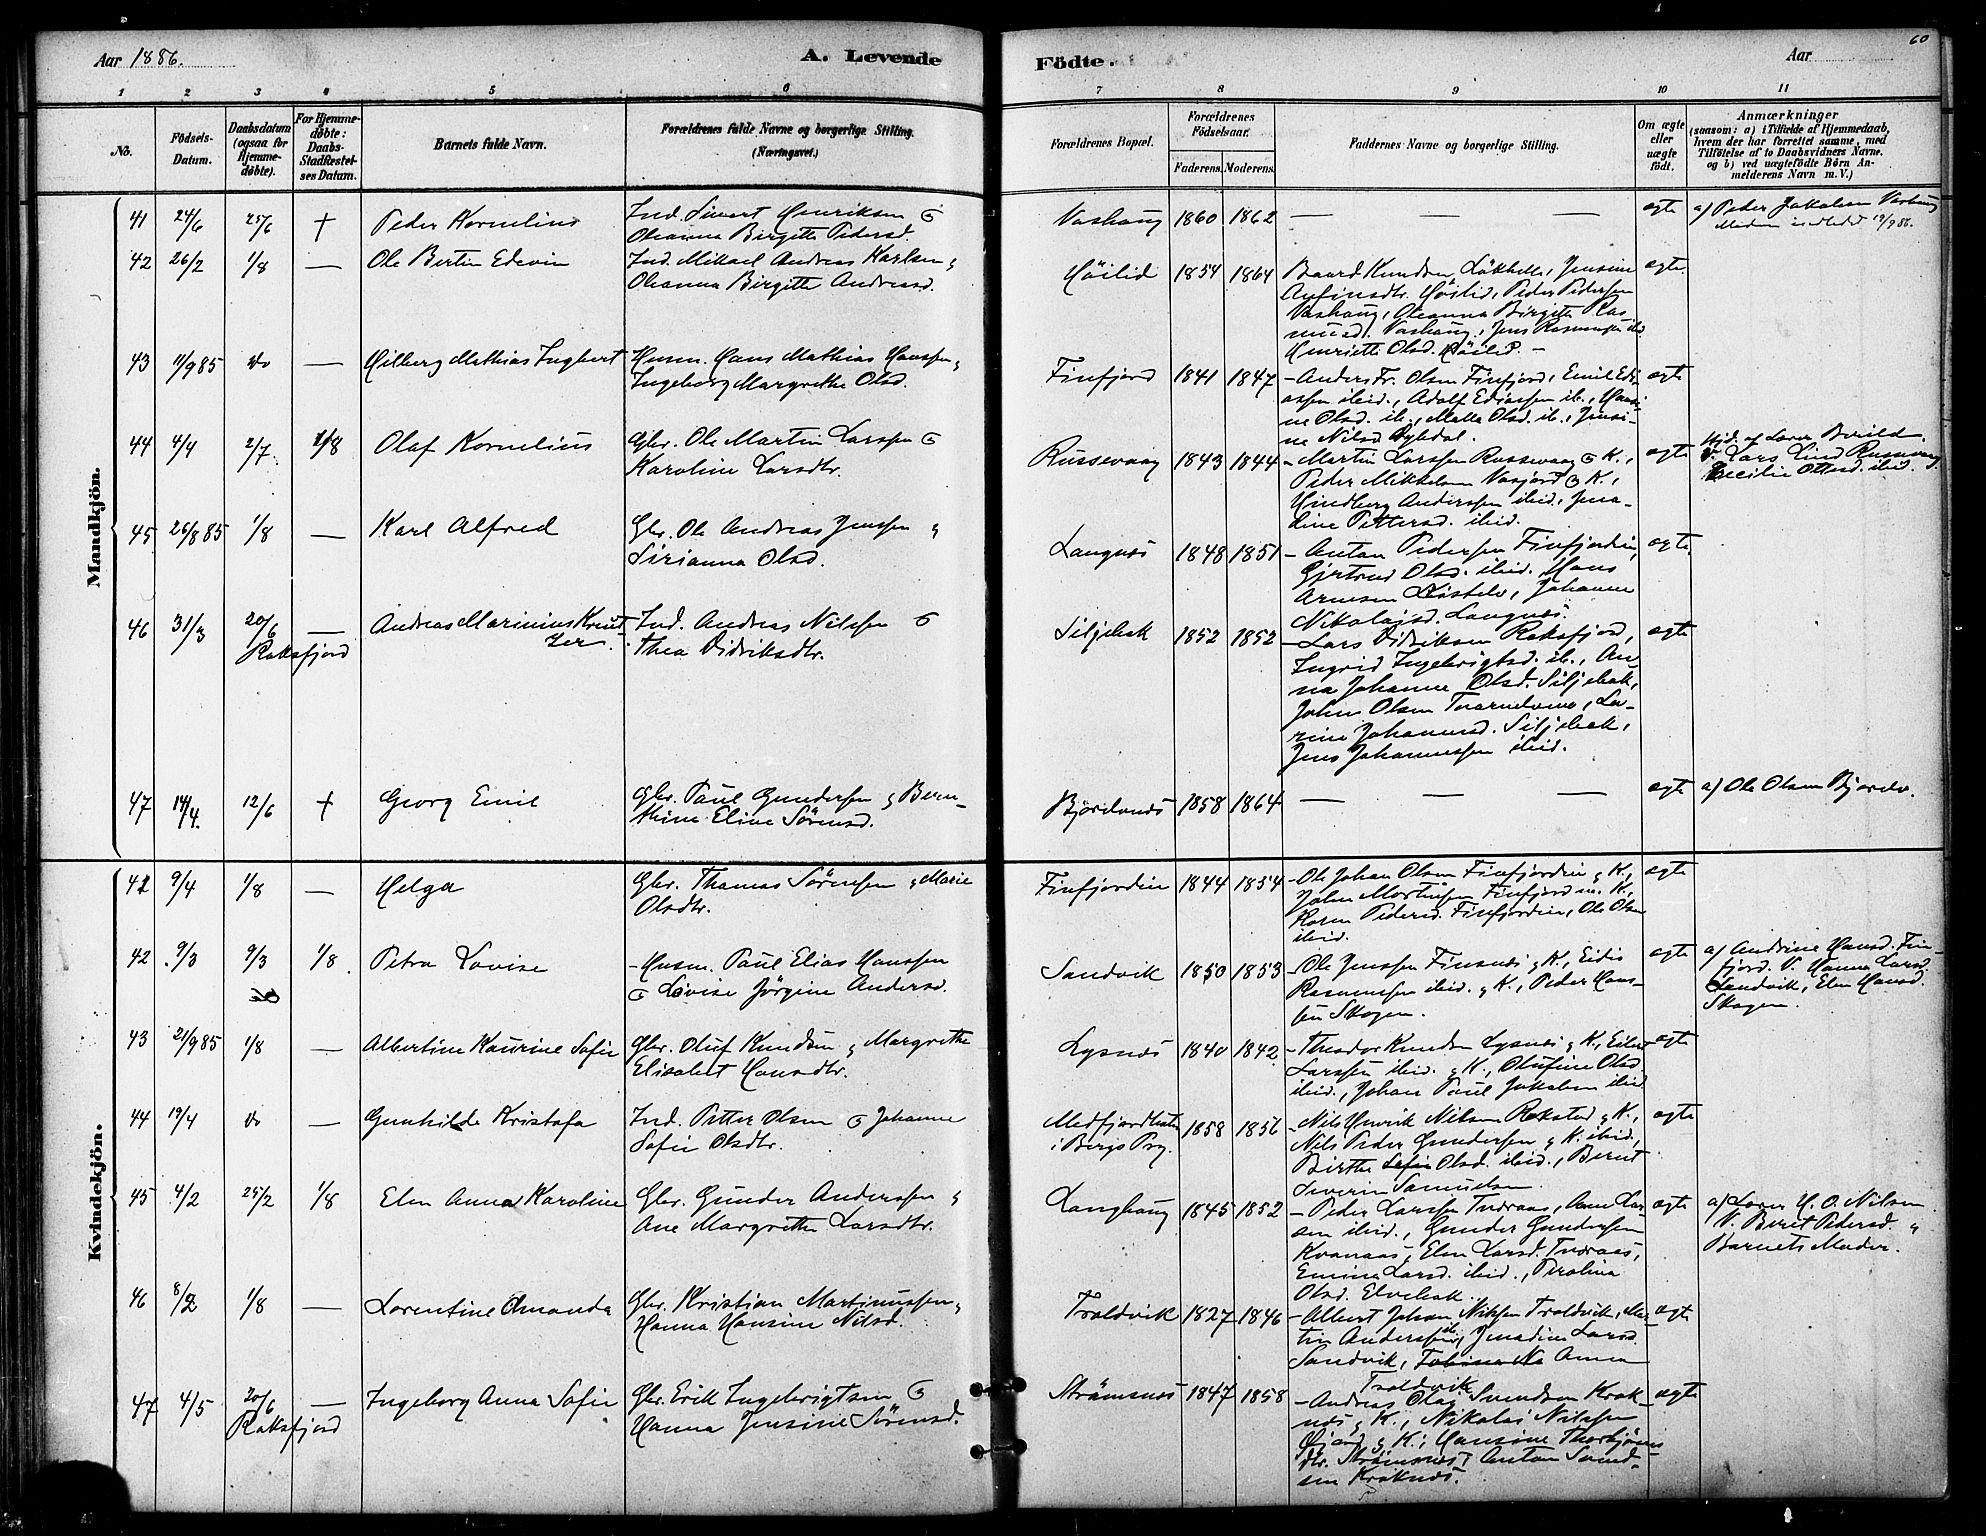 Aar 1886.
A. Levende
Födte.
Aar
60
1 2 3 4 5 6 7 8 9 10 11
No.
Födsels-Datum.
Daabsdatum (ogsaa for Hjemme-döbte).
For Hjemme-döbte: Daabs-Stadfæstel-ses Datum.
Barnets fulde Navn.
Forældrenes fulde Navne og borgerlige Stilling. (Næringsvei.)
Forældrenes Bopæl.
Forældrenes Födselsaar.
Faderens. Moderens.
Faddernes Navne og borgerlige Stilling.
Om ægte eller uægte født.
Anmærkninger
(saasom: a) i Tilfælde af Hjemmedaab,
hvem der har forrettet samme, med
Tilföielse af to Daabsvidners Navne,
og b) ved uægtefödte Börn An-
melderens Navn m. V.)
Mandkjön.
41 24/6 25/6 † Peder Kornelius Ind. Sivert Henriksen &
Oleanna Birgitte Pedersd. Vashaug 1860 1862 — — — ægte a) Peder Jakobsen Vashaug
42 26/2 1/8 — Ole Bertin Edevin Ind. Mikael Andreas Karlsen &
Oleanna Birgitte Andreasd. Höilid 1854 1864 Baard Knudsen, Jensine
Höilid, Peder Pedersen
Vashaug, Oleanna Birgitte Ras
musd. Vashaug, Jens Rasmussen ibid.
Henriette Olsd. Höilid. — ægte
43 11/9 85 do — Hilberg Mathias Ingbert Husm. Hans Mathias Hanssen &
Ingeborg Margrethe Olsd. Finfjord 1841 1847 – Anders Fr. Olsen Finfjord, Emil Edi-
assen ibid., Adolf Ediassen ib., Hansi-
ne Olsd. ib., Malla Olsd. ib., Jensi-
ne Nilsd. ægte
44 4/4 2/7 1/8 Olaf Kornelius Gbr. Ole Martin Larssen &
Karoline Larsdtr. Russevaag 1843 1844 – Martin Larssen Russevaag & K.,
Peder Mikkelsen Vasjord & K.,
Hindberg Anderssen ibid., Jena-
dine Pettersd. ibid. ægte Hjd. af Lærer
V. Lars Lind Russevaag
Cecilie Ottesd. ibid.
45 26/8 85 1/8 — Karl Alfred Gbr. Ole Andreas Jenssen &
Sirianna Olsd. Langnes 1848 1851 – Anton Pedersen Finfjorden,
Gjertrud Olsd. ibid. Hans
Arnesen, Johanna
Nikolaisd. Langnes. ægte
46 31/3 20/6 Roksfjord — Andreas Marinius Kreut-
zer. Ind. Andreas Nilssen &
Thea Didriksdtr. Siljebak 1852 1852 – Lars Didriksen Roksfjord,
Ingrid Ingebrigtsd. ib., An-
na Johanna Olsd. Siljebak,
John Olsen, La-
rine Johannesd. Siljebak,
Jens Johannessen ibid. ægte
47 14/4. 12/6 † Georg Emil Gbr. Paul Gundersen & Bern-
thine Eline Sörensd. Björelvnes 1858 1864 — — — ægte a) Ole Olsen Bjorelv.
Kvindekjön.
41 9/4 1/8 — Helga Gbr. Thomas Sörensen & Marie
Olsdtr. Finfjorden 1844 1854 – Ole Johan Olsen Finfjorden & K.,
John Mortensen Finfjord m. K.,
Karen Pedersd. Finfjorden, Ole Olsen
ibid. ægte
42 9/3 9/3 1/8 Petra Lovise – Husm. Paul Elias Hanssen
& Lovise Jörgine Andersd. Sandvik 1850 1853 – Ole Jenssen Finsnes & K., Eidis
Rasmussen ibid. & K., Peder Hans-
sen Skogen. ægte a) Andrine Hansd. Fin-
fjord. V. Hanna Larsd.
Sandvik, Elen Hansd.
Skogen.
43 21/9 85 1/8 — Albertine Kaurine Sofie Gbr. Oluf Knudsen & Margrethe
Elisabet Hansdtr. Lysnes 1840 1842 – Theodor Knudsen Lysnes & K., Eilert
Larssen ibid. & K., Olufine Olsd.
ibid., Johan Paul Jakobsen ibid. ægte
44 19/4 do — Gunhilde Kristofa Ind. Petter Olsen & Johanna
Sofie Olsdtr. Medfjordbotn
i Bergs Prg. 1858 1856 – Nils Henrik Nilsen Rokstad & K.,
Nils Peder Gundersen & K. ibid,
Birthe Sofie Olsd. ibid., Bernt
Severin Samuelsen. ægte
45 4/2 25/2 1/8 Elen Anna Karoline Gbr. Gunder Anderssen &
Ane Margrethe Larsdtr. Langhaug 1845 1852 – Peder Larssen Tveraas, Arne Lar-
sen ibid., Gunder Gundersen
Kvanaas, Elen Larsd. Tveraas,
Emma Larsd. ibid., Peroline
Olsd. Elvebak. ægte a) Lærer H. O. Nilsen
V. Berit Pedersd. &
Barnets Moder.
46 8/2 1/8 — Lorentine Amanda Gbr. Kristian Martinussen &
Hanna Hansine Nilsd. Troldvik 1827 1846 – Albert Johan Nilssen Troldvik, Mar-
tin Anderssen ib., Jenadine Larsd.
Sandvik, Anna
Troldvik ægte
47 4/5 20/6 Roksfjord — Ingeborg Anna Sofie Gbr. Erik Ingebrigtsen &
Hanna Jensine Sörensd. Strömsnes 1847 1858 – Andreas Olai Svendsen Krak-
nes & K., Nikolai Nilssen
& K., Hansine Thorbjörns
dtr. Strömsnes, Anton Svend-
sen Kraknes. ægte